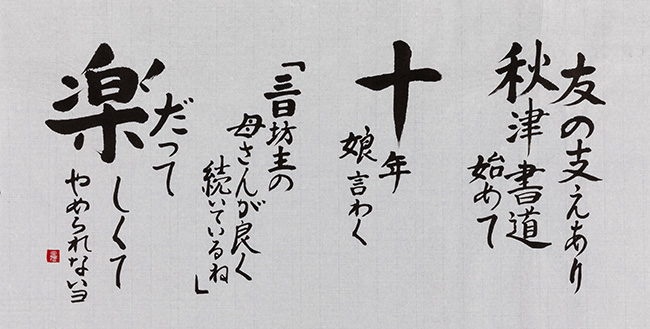 友の支えあり
秋津書道
始めて
十年
娘言わく
「三日坊主の
母さんが良く
続いているね」
だって
楽しくて
やめられないヨ